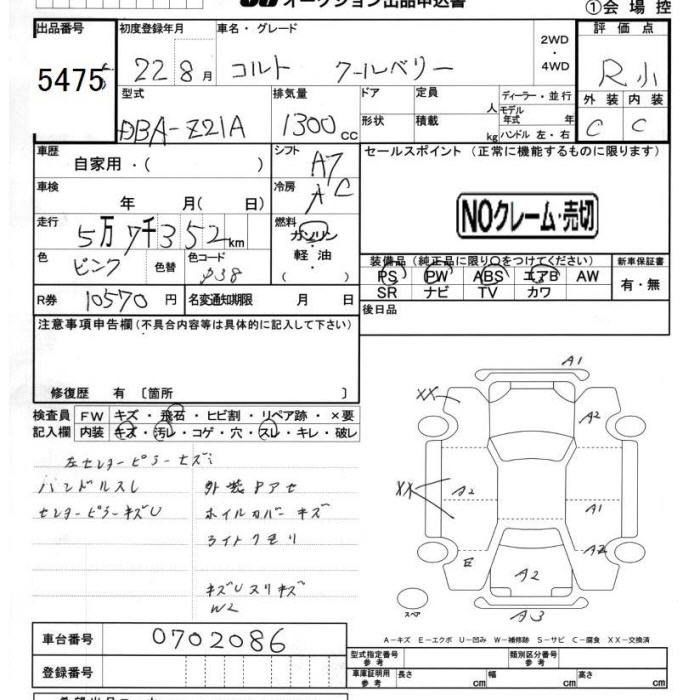 オークション出品申込書
①会場控
出品番号 初度登録年月 車名・グレード 2WD・4WD 評価点
5475 22 8月 コルト クールベリー R小
型式 排気量 ドア 定員 人 ディーラー・並行 外装 内装
DBA-Z21A 1300cc 形状 積載 kg モデル年式 年 ハンドル 左・右 C C
車歴 自家用・( ) シフト AT セールスポイント (正常に機能するものに限ります)
車検 年 月( 日) 冷房 AC NOクレーム・売切
走行 5万7千352km 燃料 ガソリン 軽油 ( )
色 ピンク 色替 色コード P38
装備品(純正品に限り○をつけてください) 新車保証書
PS PW ABS エアB AW 有・無
SR ナビ TV カワ
R券 10570円 名変通知期限 月 日 後日品
注意事項申告欄(不具合内容等は具体的に記入して下さい)
修復歴 有〔箇所 〕
検査員記入欄 FW キズ・飛石・ヒビ割・リペア跡・×要
内装 キズ・汚レ・コゲ・穴・スレ・キレ・破レ
左センターピラー
ハンドルスレ 外装Pアセ
センターピラーキズU ホイルカバーキズ
ライトクモリ
キズUスリキズ
W2
A1
XX
A2
XX A2 A1
A2
E A2
スペア A3
A-キズ E-エクボ U-凹み W-補修跡 S-サビ C-腐食 XX-交換済
車台番号 0702086
登録番号
型式指定番号 参考 類別区分番号 参考
車庫証明用 参考 長さ cm 幅 cm 高さ cm